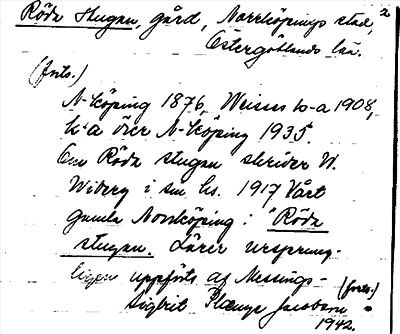 Röda Stugan, gård, Norrköpings stad, 2
Östergötlands län.
(forts.)
N-köping 1876, Weisers k-a 1908,
k-a över N-köping 1935.
Om Röda stugan skriver W.
Wiberg i sin hs. 1917 Vårt
gamla Norrköping: "Röda
stugan. Lärer ursprung-
ligen uppförts af Messings-
(forts.)
Sigbrit Plænge Jacobson
1942.